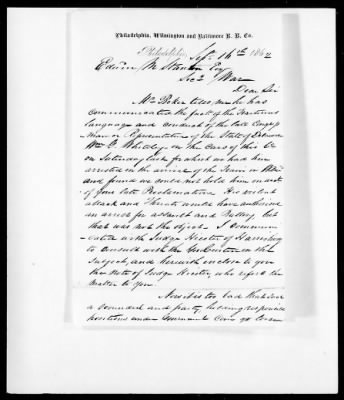 Philadelphia, Wilmington and Baltimore R. R. Co.
Philadelphia, Sept. 16th 1862
Edwin M Stanton Esq
Secy War
Dear Sir
Mr Baker tells me he has
communicated the fact of the traitorous
language and conduct of the late Congress
Man or Representative of the State of Delaware
Wm G. Whiteley on the Cars of this Co
on Saturday last for which we had him
arrested on the arrival of the Train in
and found we could not hold him
of your late Proclamation. His violent
attack and threats would have authorised
an arrest for assault and Battery, but
that was not the object. I communi
cated with Judge Hiester of Harrisburg
to consult with the on the
Subject, and herewith enclose to you
the Note of Judge Hiester, who referd the
matter to you.
Now it is too bad that such
a scoundrel and party, holding responsible
positions under Government can go